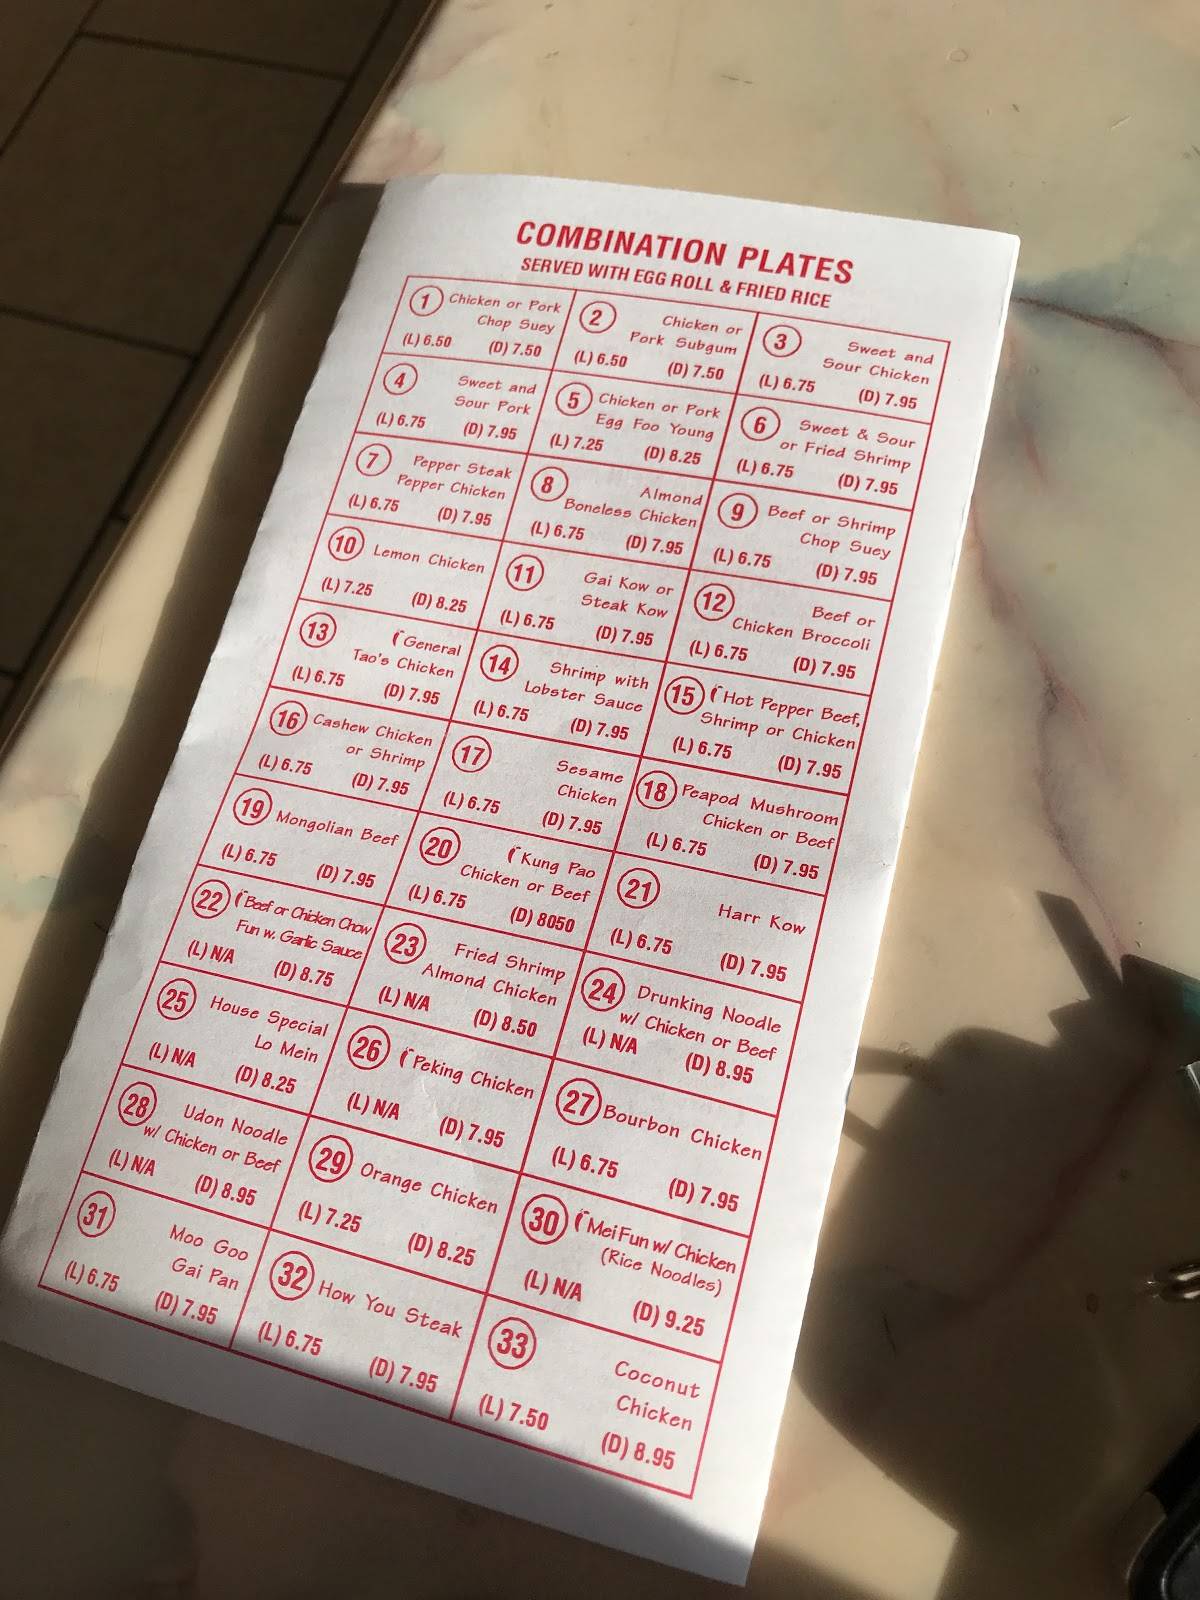 COMBINATION PLATES
SERVED WITH EGG ROLL & FRIED RICE
1 Chicken or Pork
Chop Suey
(L) 6.50 (D) 7.50
2 Chicken or
Pork Subgum
(L) 6.50 (D) 7.50
3 Sweet and
Sour Chicken
(L) 6.75 (D) 7.95
4 Sweet and
Sour Pork
(L) 6.75 (D) 7.95
5 Chicken or Pork
Egg Foo Young
(L) 7.25 (D) 8.25
6 Sweet & Sour
or Fried Shrimp
(L) 6.75 (D) 7.95
7 Pepper Steak
Pepper Chicken
(L) 6.75 (D) 7.95
8 Almond
Boneless Chicken
(L) 6.75 (D) 7.95
9 Beef or Shrimp
Chop Suey
(L) 6.75 (D) 7.95
10 Lemon Chicken
(L) 7.25 (D) 8.25
11 Gai Kow or
Steak Kow
(L) 6.75 (D) 7.95
12 Beef or
Chicken Broccoli
(L) 6.75 (D) 7.95
13 General
Tao's Chicken
(L) 6.75 (D) 7.95
14 Shrimp with
Lobster Sauce
(L) 6.75 (D) 7.95
15 Hot Pepper Beef,
Shrimp or Chicken
(L) 6.75 (D) 7.95
16 Cashew Chicken
or Shrimp
(L) 6.75 (D) 7.95
17 Sesame
Chicken
(L) 6.75 (D) 7.95
18 Peapod Mushroom
Chicken or Beef
(L) 6.75 (D) 7.95
19 Mongolian Beef
(L) 6.75 (D) 7.95
20 Kung Pao
Chicken or Beef
(L) 6.75 (D) 8050
21 Harr Kow
(L) 6.75 (D) 7.95
22 Beef or Chicken Chow
Fun w. Garlic Sauce
(L) N/A (D) 8.75
23 Fried Shrimp
Almond Chicken
(L) N/A (D) 8.50
24 Drunking Noodle
w/ Chicken or Beef
(L) N/A (D) 8.95
25 House Special
Lo Mein
(L) N/A (D) 8.25
26 Peking Chicken
(L) N/A (D) 7.95
27 Bourbon Chicken
(L) 6.75 (D) 7.95
28 Udon Noodle
w/ Chicken or Beef
(L) N/A (D) 8.95
29 Orange Chicken
(L) 7.25 (D) 8.25
30 Mei Fun w/ Chicken
(Rice Noodles)
(L) N/A (D) 9.25
31 Moo Goo
Gai Pan
(L) 6.75 (D) 7.95
32 How You Steak
(L) 6.75 (D) 7.95
33 Coconut
Chicken
(L) 7.50 (D) 8.95